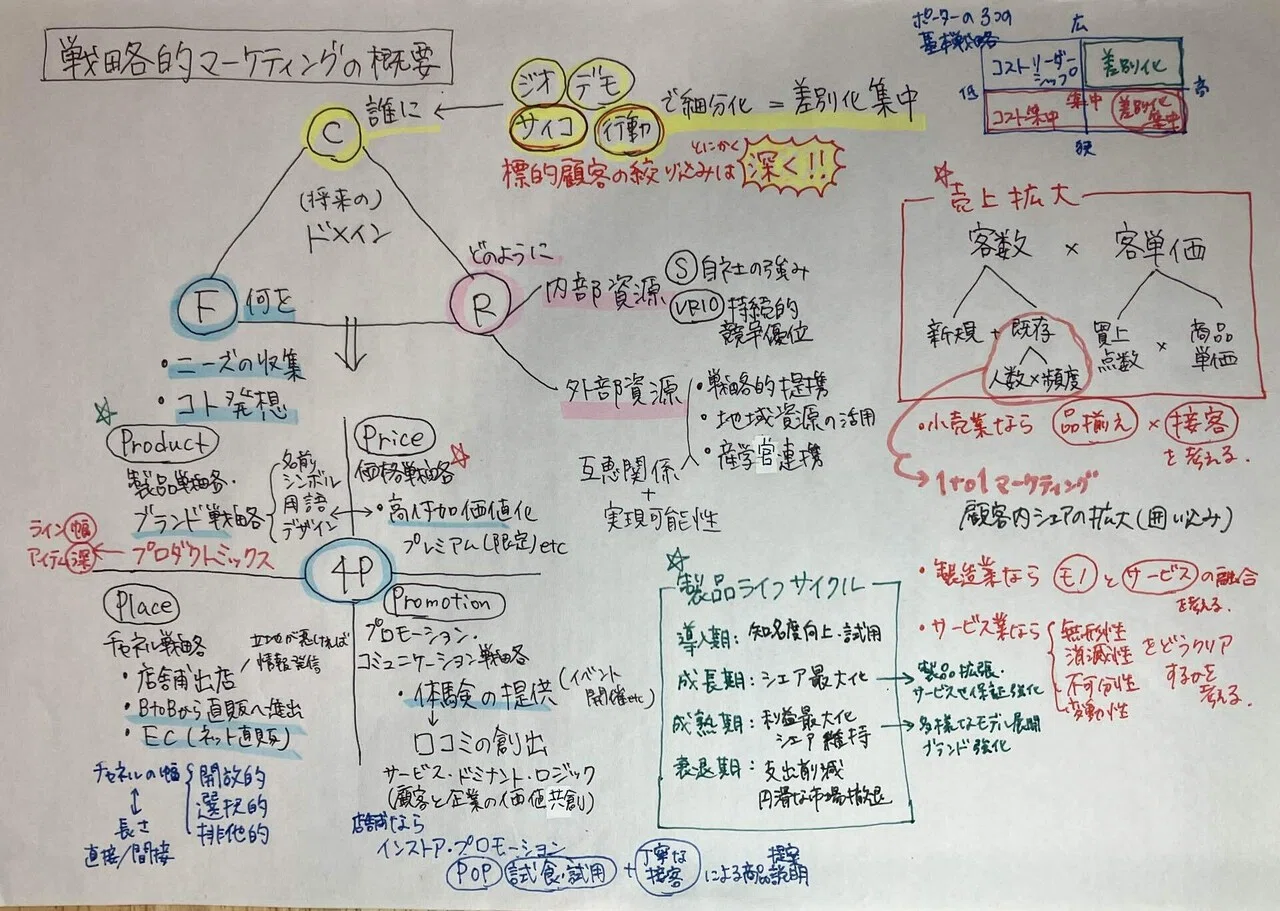 戦略的マーケティングの概要
C 誰に
ジオ デモ
サイコ 行動
で細分化 = 差別化集中
とにかく
標的顧客の絞り込みは 深く!!
ポーターの3つの
基本戦略
広
コストリーダー
シップ
差別化
低
高
集中
コスト集中
差別化
集中
狭
(将来の)
ドメイン
F 何を
・ニーズの収集
・コト発想
どのように
R
内部資源
S 自社の強み
VRIO 持続的
競争優位
外部資源
・戦略的提携
・地域資源の活用
・産学官連携
互恵関係
+
実現可能性
☆売上拡大
客数 × 客単価
新規 + 既存
人数×頻度
買上
点数
×
商品
単価
・小売業なら 品揃え × 接客
を考える.
1to1マーケティング
顧客内シェアの拡大(囲い込み)
・製造業なら モノ と サービス の融合
を考える.
・サービス業なら
無形性
消滅性
不可分性
変動性
をどうクリア
するかを
考える.
4P
☆
Product
製品戦略・
ブランド戦略
名前
シンボル
用語
デザイン
プロダクトミックス
ライン 幅
アイテム 深
Price
価格戦略☆
・高付加価値化
プレミアム(限定)etc
Place
チャネル戦略
・店舗出店
立地が悪ければ
情報発信
・BtoBから直販へ進出
・EC(ネット直販)
チャネルの幅
開放的
選択的
排他的
長さ
直接/間接
Promotion
プロモーション・
コミュニケーション戦略
・体験の提供
(イベント
開催etc)
口コミの創出
サービス・ドミナント・ロジック
(顧客と企業の価値共創)
店舗なら
インストア・プロモーション
POP 試食・試用 + 丁寧な
接客
による商品
提案
説明
☆
製品ライフサイクル
導入期: 知名度向上・試用
成長期: シェア最大化
製品拡張・
サービスや保証強化
成熟期: 利益最大化
シェア維持
多様なモデル展開
ブランド強化
衰退期: 支出削減
円滑な市場撤退